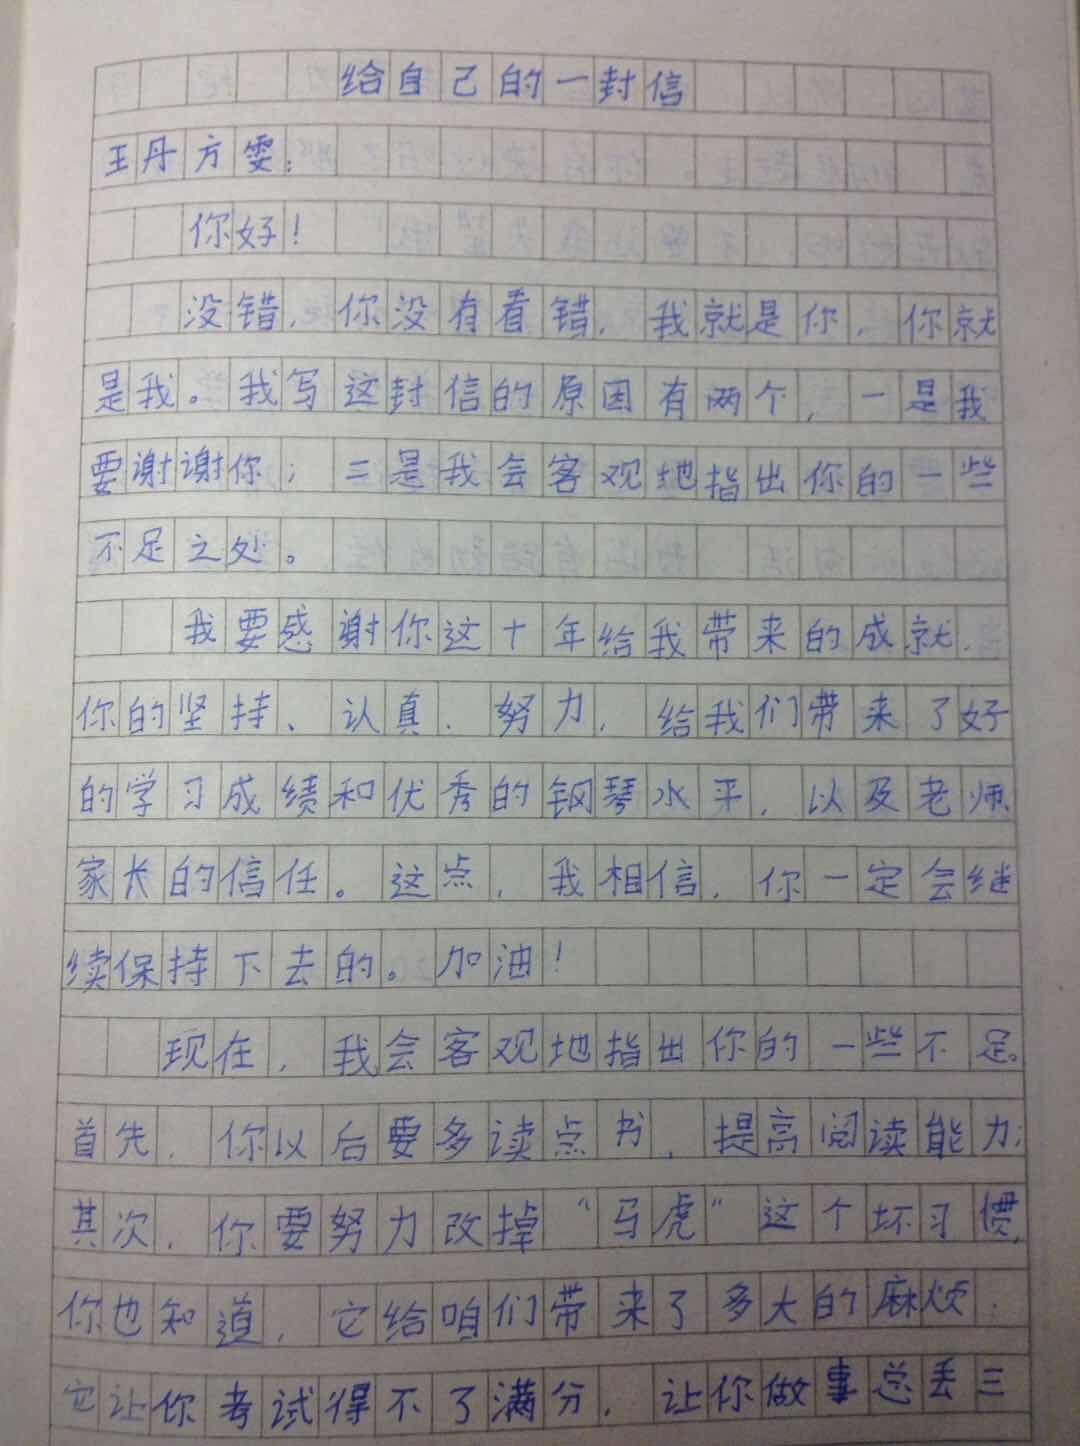 给自己的一封信
王丹方雯：
你好！
没错，你没有看错，我就是你，你就
是我。我写这封信的原因有两个，一是我
要谢谢你；二是我会客观地指出你的一些
不足之处。
我要感谢你这十年给我带来的成就，
你的坚持、认真、努力，给我们带来了好
的学习成绩和优秀的钢琴水平，以及老师、
家长的信任。这点，我相信，你一定会继
续保持下去的。加油！
现在，我会客观地指出你的一些不足。
首先，你以后要多读点书，提高阅读能力；
其次，你要努力改掉“马虎”这个坏习惯，
你也知道，它给咱们带来了多大的麻烦：
它让你考试得不了满分，让你做事总丢三